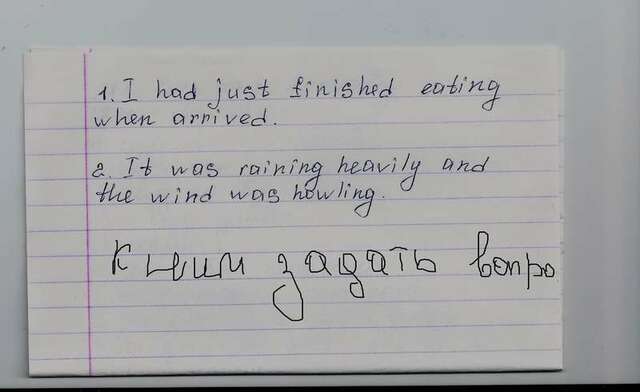 1. I had just finished eating
when arrived.
2. It was raining heavily and
the wind was howling.
К задать вопро